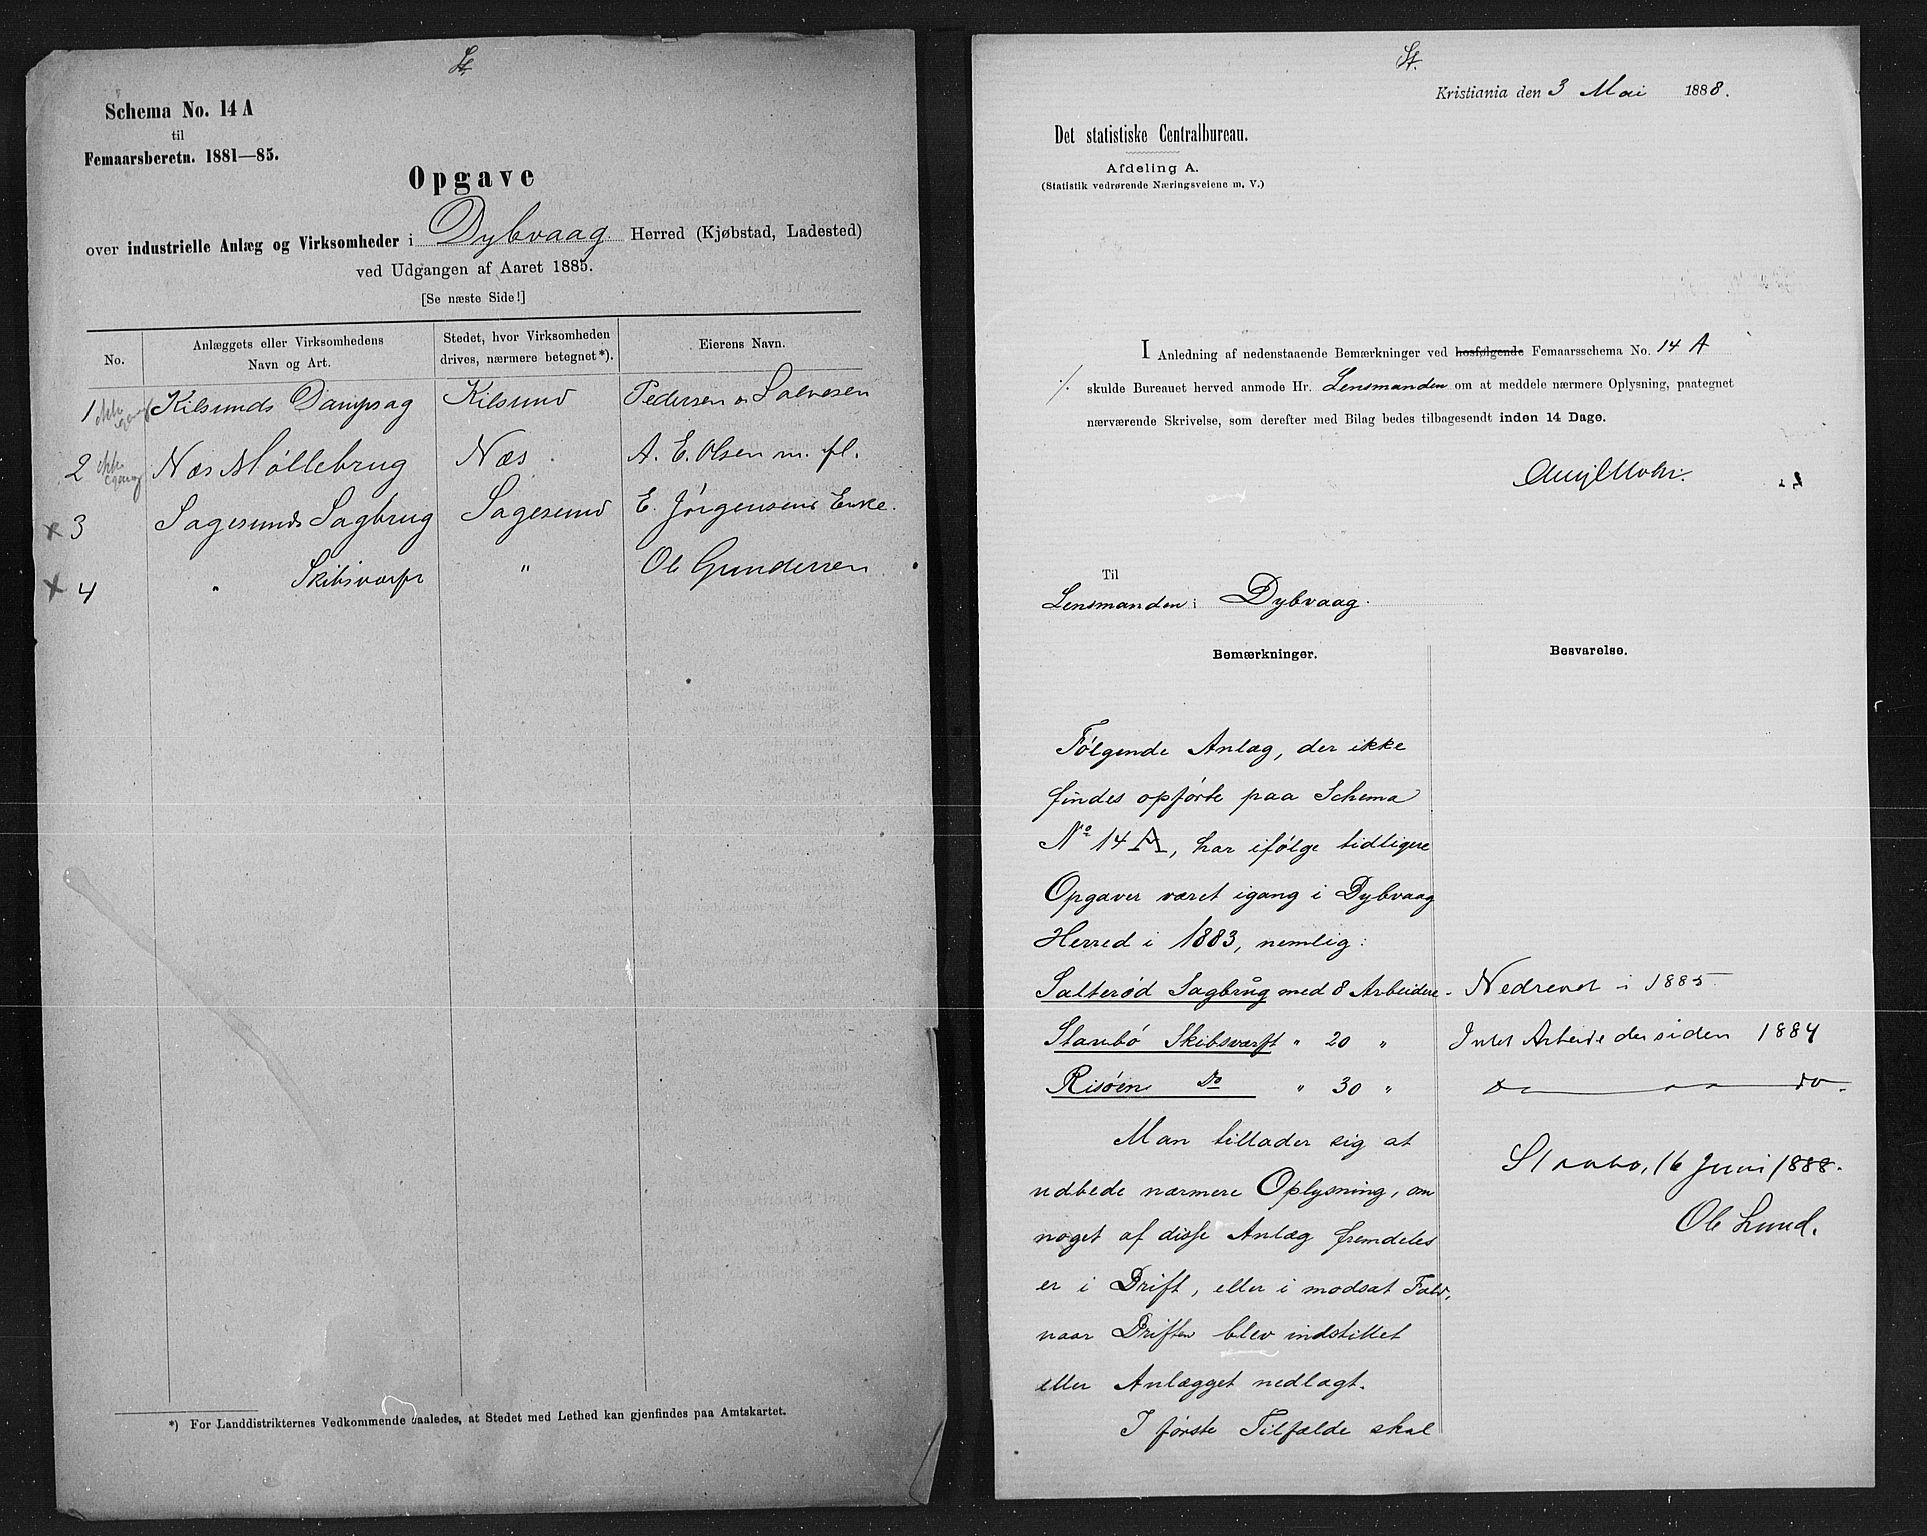 St.
Schema No. 14 A
til
Femaarsberetn. 1881—85.
Opgave
over industrielle Anlæg og Virksomheder i Dybvaag Herred (Kjøbstad, Ladested)
ved Udgangen af Aaret 1885.
[Se næste Side!]
No. Anlæggets eller Virksomhedens Navn og Art. Stedet, hvor Virksomheden drives, nærmere betegnet*). Eierens Navn.
1 ikke igang Kilsunds Dampsag Kilsund Pedersen & Salvesen
2 ikke igang Næs Møllebrug Næs. A. E. Olsen m. fl.
x 3 Sagesunds Sagbrug Sagesund E. Jørgensens Enke.
x 4 " Skibsværft " Ole Gundersen
*) For Landdistrikternes Vedkommende saaledes, at Stedet med Lethed kan gjenfindes paa Amtskartet.
St.
Kristiania den 3 Mai 1888.
Det statistiske Centralbureau.
Afdeling A.
(Statistik vedrørende Næringsveiene m. V.)
I Anledning af nedenstaaende Bemærkninger ved hosfølgende Femaarsschema No. 14 A
./. skulde Bureauet herved anmode Hr. Lensmanden om at meddele nærmere Oplysning, paategnet
nærværende Skrivelse, som derefter med Bilag bedes tilbagesendt inden 14 Dage.
Til
Lensmanden i Dybvaag.
Bemærkninger. Besvarelse.
Følgende Anlæg, der ikke
findes opførte paa Schema
No 14 A, har ifølge tidligere
Opgaver været igang i Dybvaag
Herred i 1883, nemlig:
Salterød Sagbrug med 8 Arbeidere - Nedrevet i 1885
Staubø Skibsværft " 20 " Intet Arbeide der siden 1884
Risøen Do " 30 " do do.
Man tillader sig at
udbede nærmere Oplysning, om
noget af disse Anlæg fremdeles
er i Drift, eller i modsat Fald,
naar Driften blev indstillet
eller Anlægget nedlagt.
I første Tilfælde skal
Staubo, 16 Juni 1888.
Ole Lund.